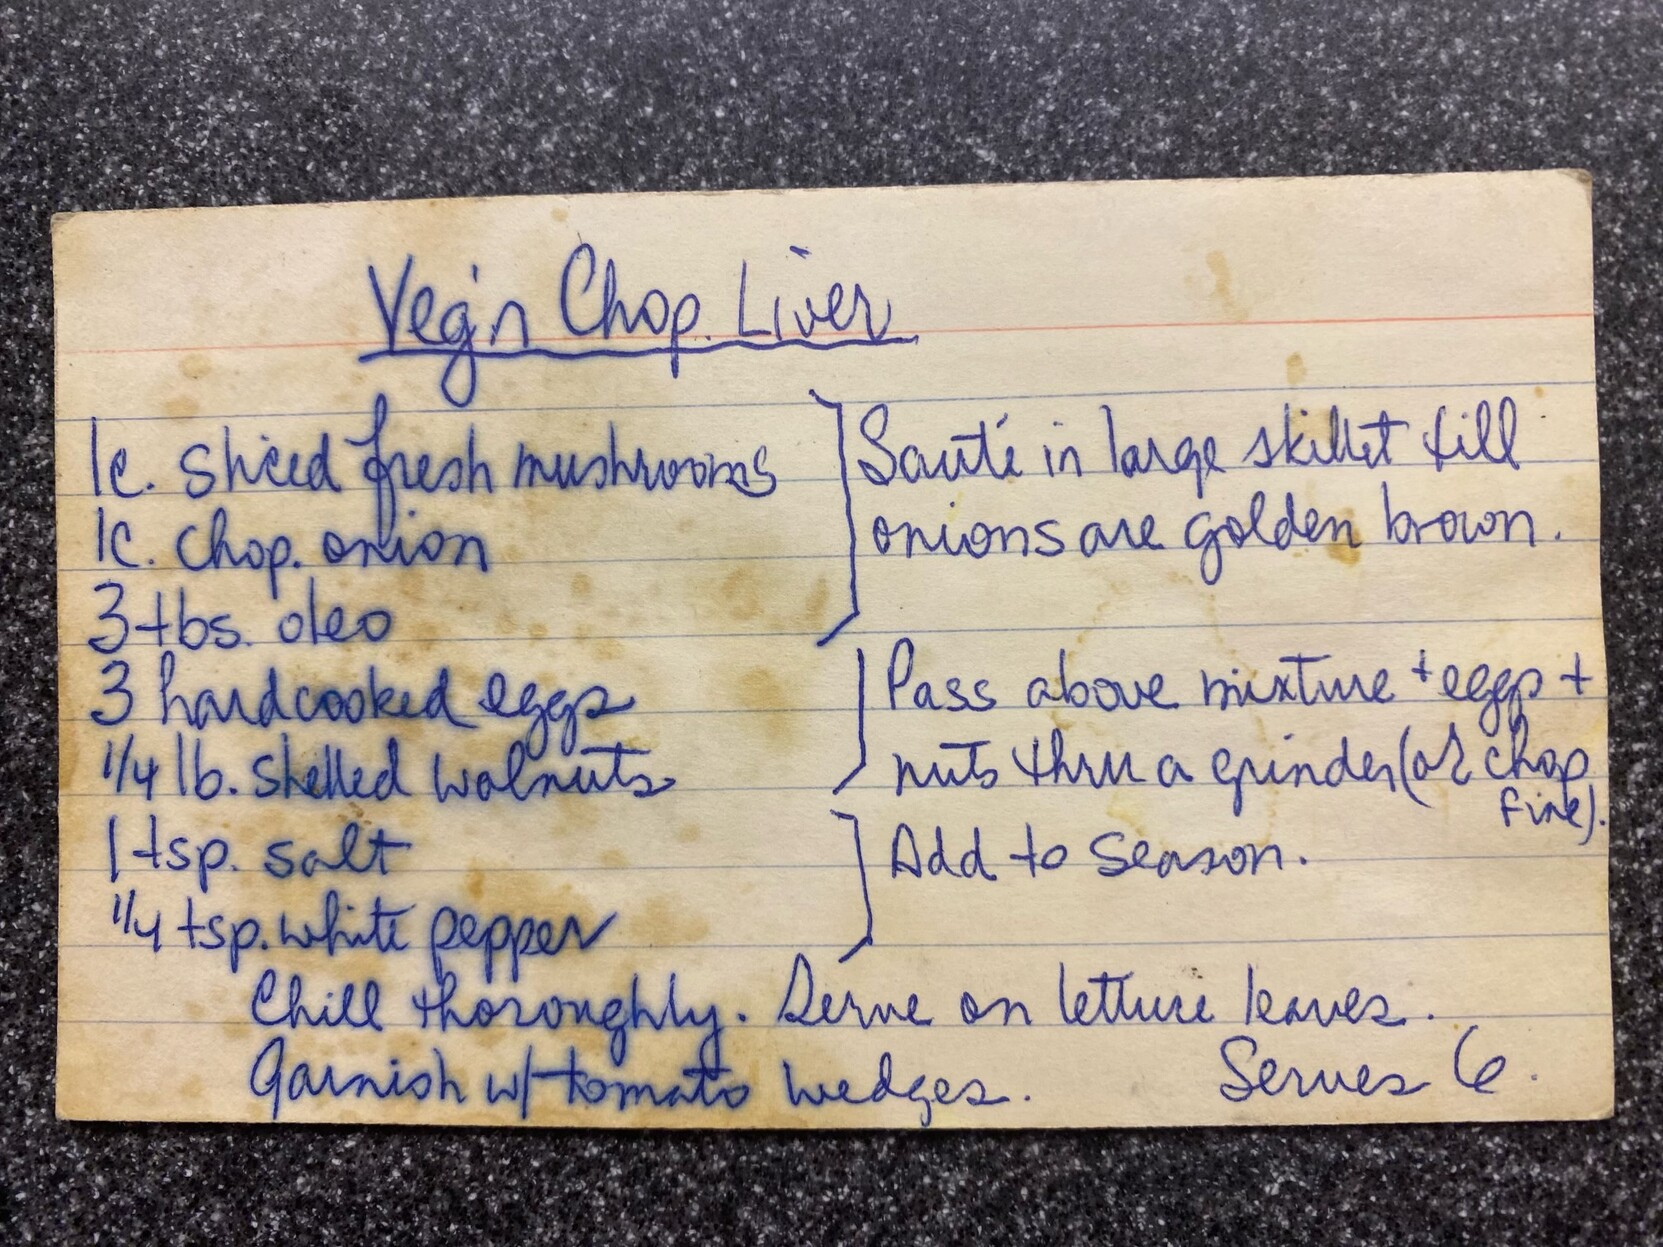 Veg'n Chop. Liver
1c. sliced fresh mushrooms
1c. chop. onion
3 tbs. oleo
Sauté in large skillet till
onions are golden brown.
3 hardcooked eggs
1/4 lb. shelled walnuts
Pass above mixture + eggs +
nuts thru a grinder (or chop
fine).
1 tsp. salt
1/4 tsp. white pepper
Add to season.
Chill thoroughly. Serve on lettuce leaves.
Garnish w/ tomato wedges. Serves 6.